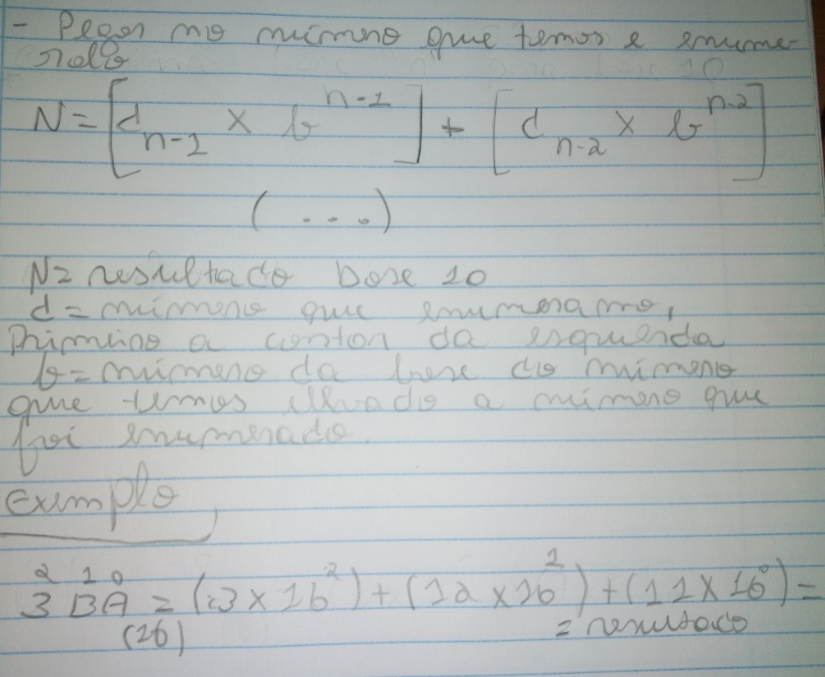 - Pegar no número que temos e enume-
ralo
N = [d n-1 × b^n-1] + [d n-2 × b^n-2]
(....)
N= resultado base 10
d= número que enumeramo,
Primeiro a contar da esquerda
b= número da base do número
que temos elevado a número que
foi enumerado.
Exemplo
2 1 0
3 BA = (3×16²)+(12×16¹)+(11×16⁰)=
(16) = resultado